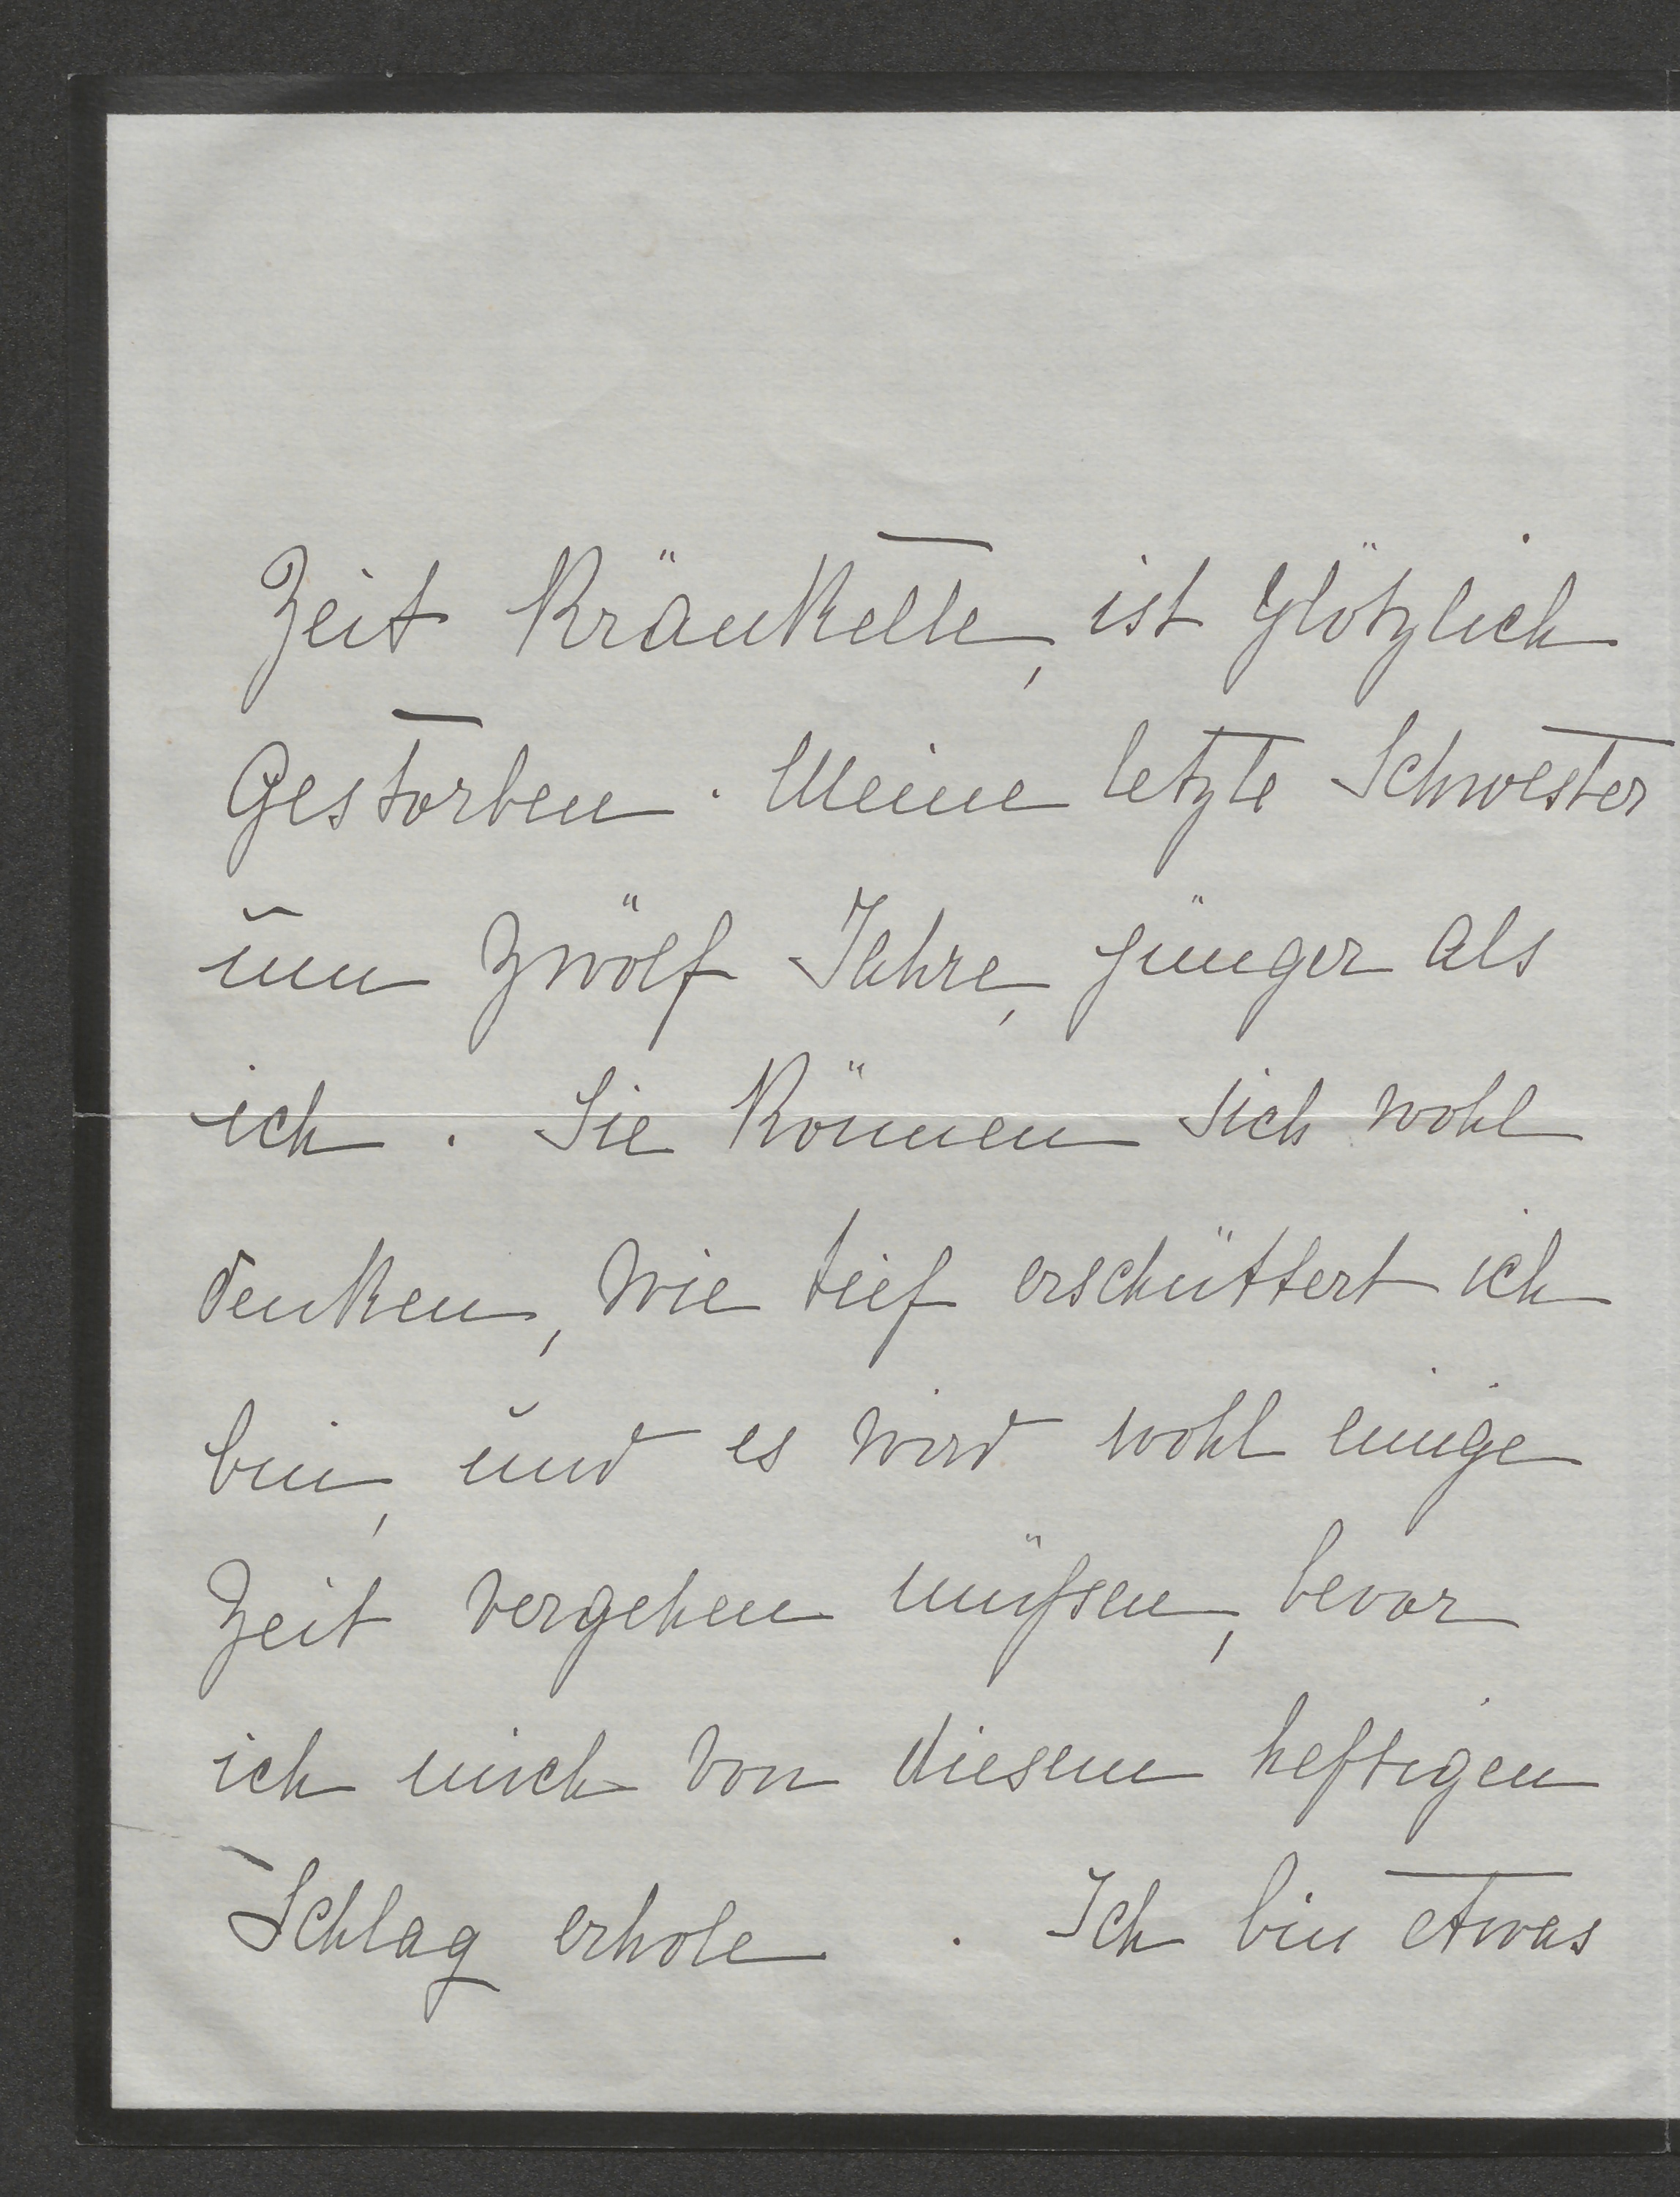 Zeit kränkelte, ist plötzlich
gestorben. Meine letzte Schwester
um zwölf Jahre, jünger als
ich. Sie können sich wohl
denken, wie tief erschüttert ich
bin, und es wird wohl einige
Zeit vergehen müßsen, bevor
ich mich von diesem heftigen
Schlag erhole. Ich bin etwas